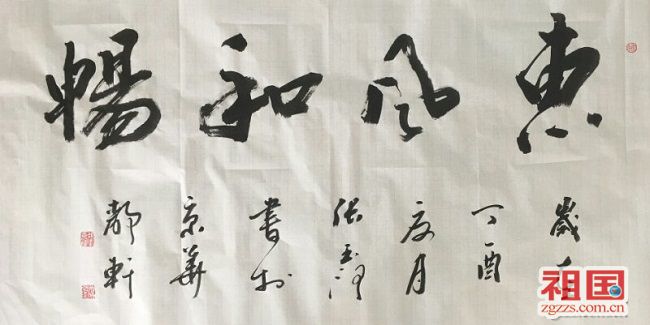 惠风和暢
歲在
丁酉
夏月
張玉
書於
京華
軒
祖国
zgzzs.com.cn